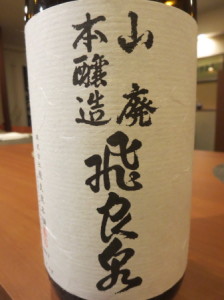 山廃
本醸造
飛良泉